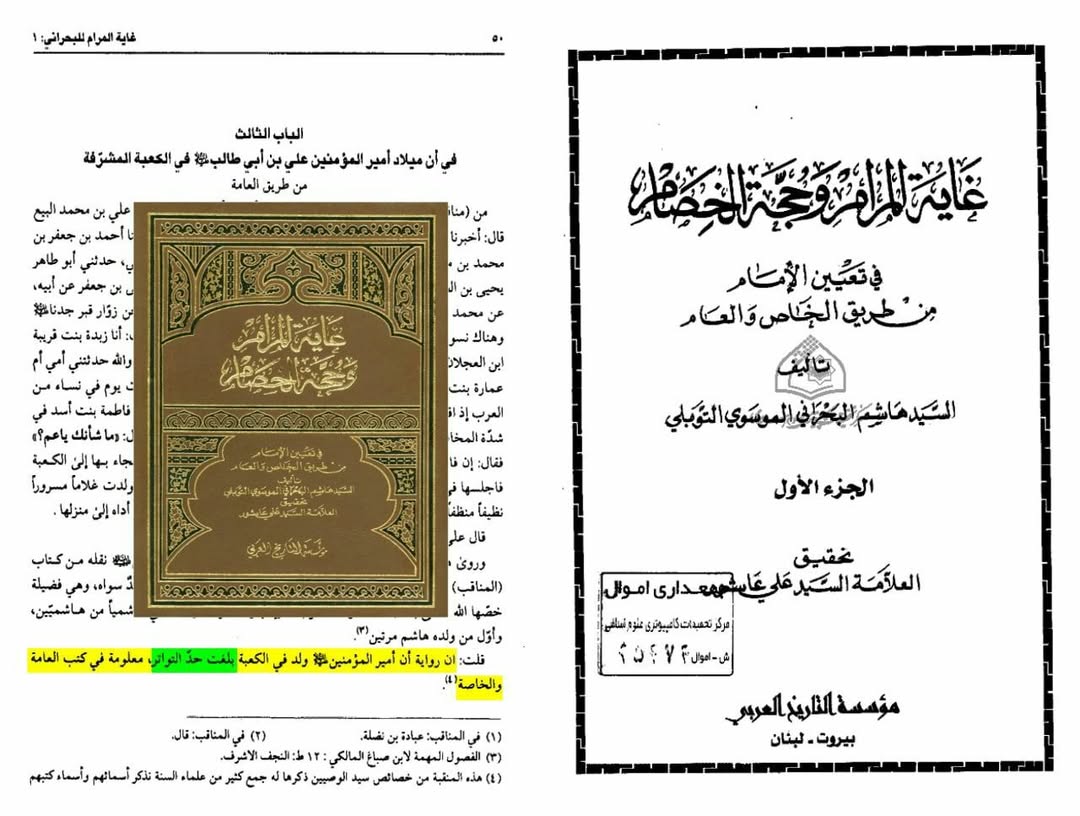 غاية المرام للبحراني: ١
٥٠
الباب الثالث
في أن ميلاد أمير المؤمنين علي بن أبي طالب في الكعبة المشرّفة
من طريق العامة
علي بن محمد البيع
قال: أخبرنا
أحمد بن جعفر بن
محمد بن
حدثني أبو طاهر
يحيى بن
بن جعفر عن أبيه،
عن محمد
زوّار قبر جدنا
وهناك نسو
أنا زبدة بنت قريبة
ابن العجلان
والله حدثتني أمي أم
عمارة بنت
يوم في نساء من
العرب إذ
فاطمة بنت أسد في
شدّة المخا
«ما شأنك ياعم؟»
فقال: إن فا
فجاء بها إلى الكعبة
فاجلسها
ولدت غلاماً مسروراً
نظيفاً منظفاً
أداه إلى منزلها.
قال علي
وروى
نقله من كتاب
(المناقب)
سواه، وهي فضيلة
خصّها الله
من هاشميّين،
وأوّل من ولده هاشم مرتين(٣).
قلت: ان رواية أن أمير المؤمنين ولد في الكعبة بلغت حدّ التواتر، معلومة في كتب العامة
والخاصة(٤).
(١) في المناقب: عبادة بن نضلة. (٢) في المناقب: قال.
(٣) الفصول المهمة لابن صباغ المالكي: ١٢ ط: النجف الاشرف.
(٤) هذه المنقبة من خصائص سيد الوصيين ذكرها له جمع كثير من علماء السنة نذكر أسمائهم وأسماء كتبهم
غاية المرام
وحجة الخصام
في تعيين الإمام
من طريق الخاص والعام
تأليف
السيد هاشم البحراني الموسوي التوبلي
تحقيق
العلامة السيد علي عاشور
مؤسسة التاريخ العربي
غاية المرام وحجة الخصام
في تعيين الإمام
من طريق الخاص والعام
تأليف
السيد هاشم البحراني الموسوي التوبلي
الجزء الأول
تحقيق
العلامة السيد علي عاشور
جمعداری اموال
مركز تحقيقات كامپيوترى علوم اسلامى
ش - اموال
مؤسسة التاريخ العربي
بيروت - لبنان